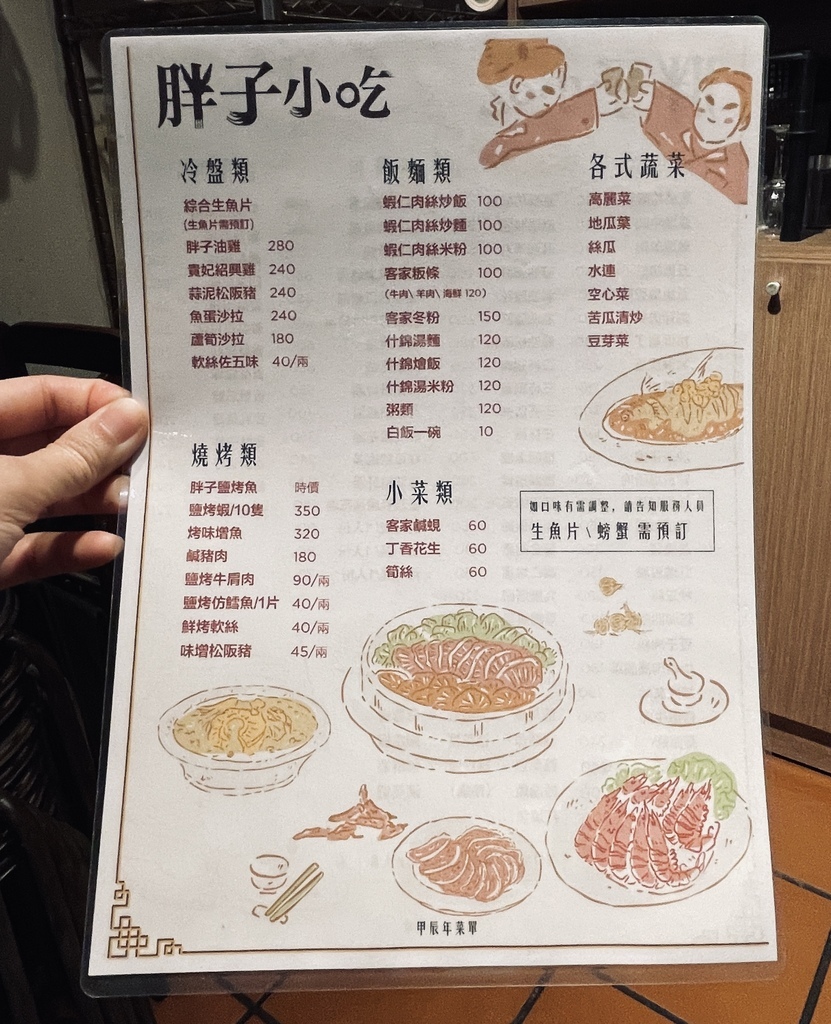 胖子小吃
冷盤類
綜合生魚片
(生魚片需預訂)
胖子油雞 280
貴妃紹興雞 240
蒜泥松阪豬 240
魚蛋沙拉 240
蘆筍沙拉 180
軟絲佐五味 40/兩
燒烤類
胖子鹽烤魚 時價
鹽烤蝦/10隻 350
烤味增魚 320
鹹豬肉 180
鹽烤牛肩肉 90/兩
鹽烤仿鱈魚/1片 40/兩
鮮烤軟絲 40/兩
味增松阪豬 45/兩
飯麵類
蝦仁肉絲炒飯 100
蝦仁肉絲炒麵 100
蝦仁肉絲米粉 100
客家粄條 100
(牛肉\ 羊肉\ 海鮮 120)
客家冬粉 150
什錦湯麵 120
什錦燴飯 120
什錦湯米粉 120
粥類 120
白飯一碗 10
小菜類
客家鹹蜆 60
丁香花生 60
筍絲 60
各式蔬菜
高麗菜
地瓜葉
絲瓜
水連
空心菜
苦瓜清炒
豆芽菜
如口味有需調整，請告知服務人員
生魚片\螃蟹 需預訂
甲辰年菜單